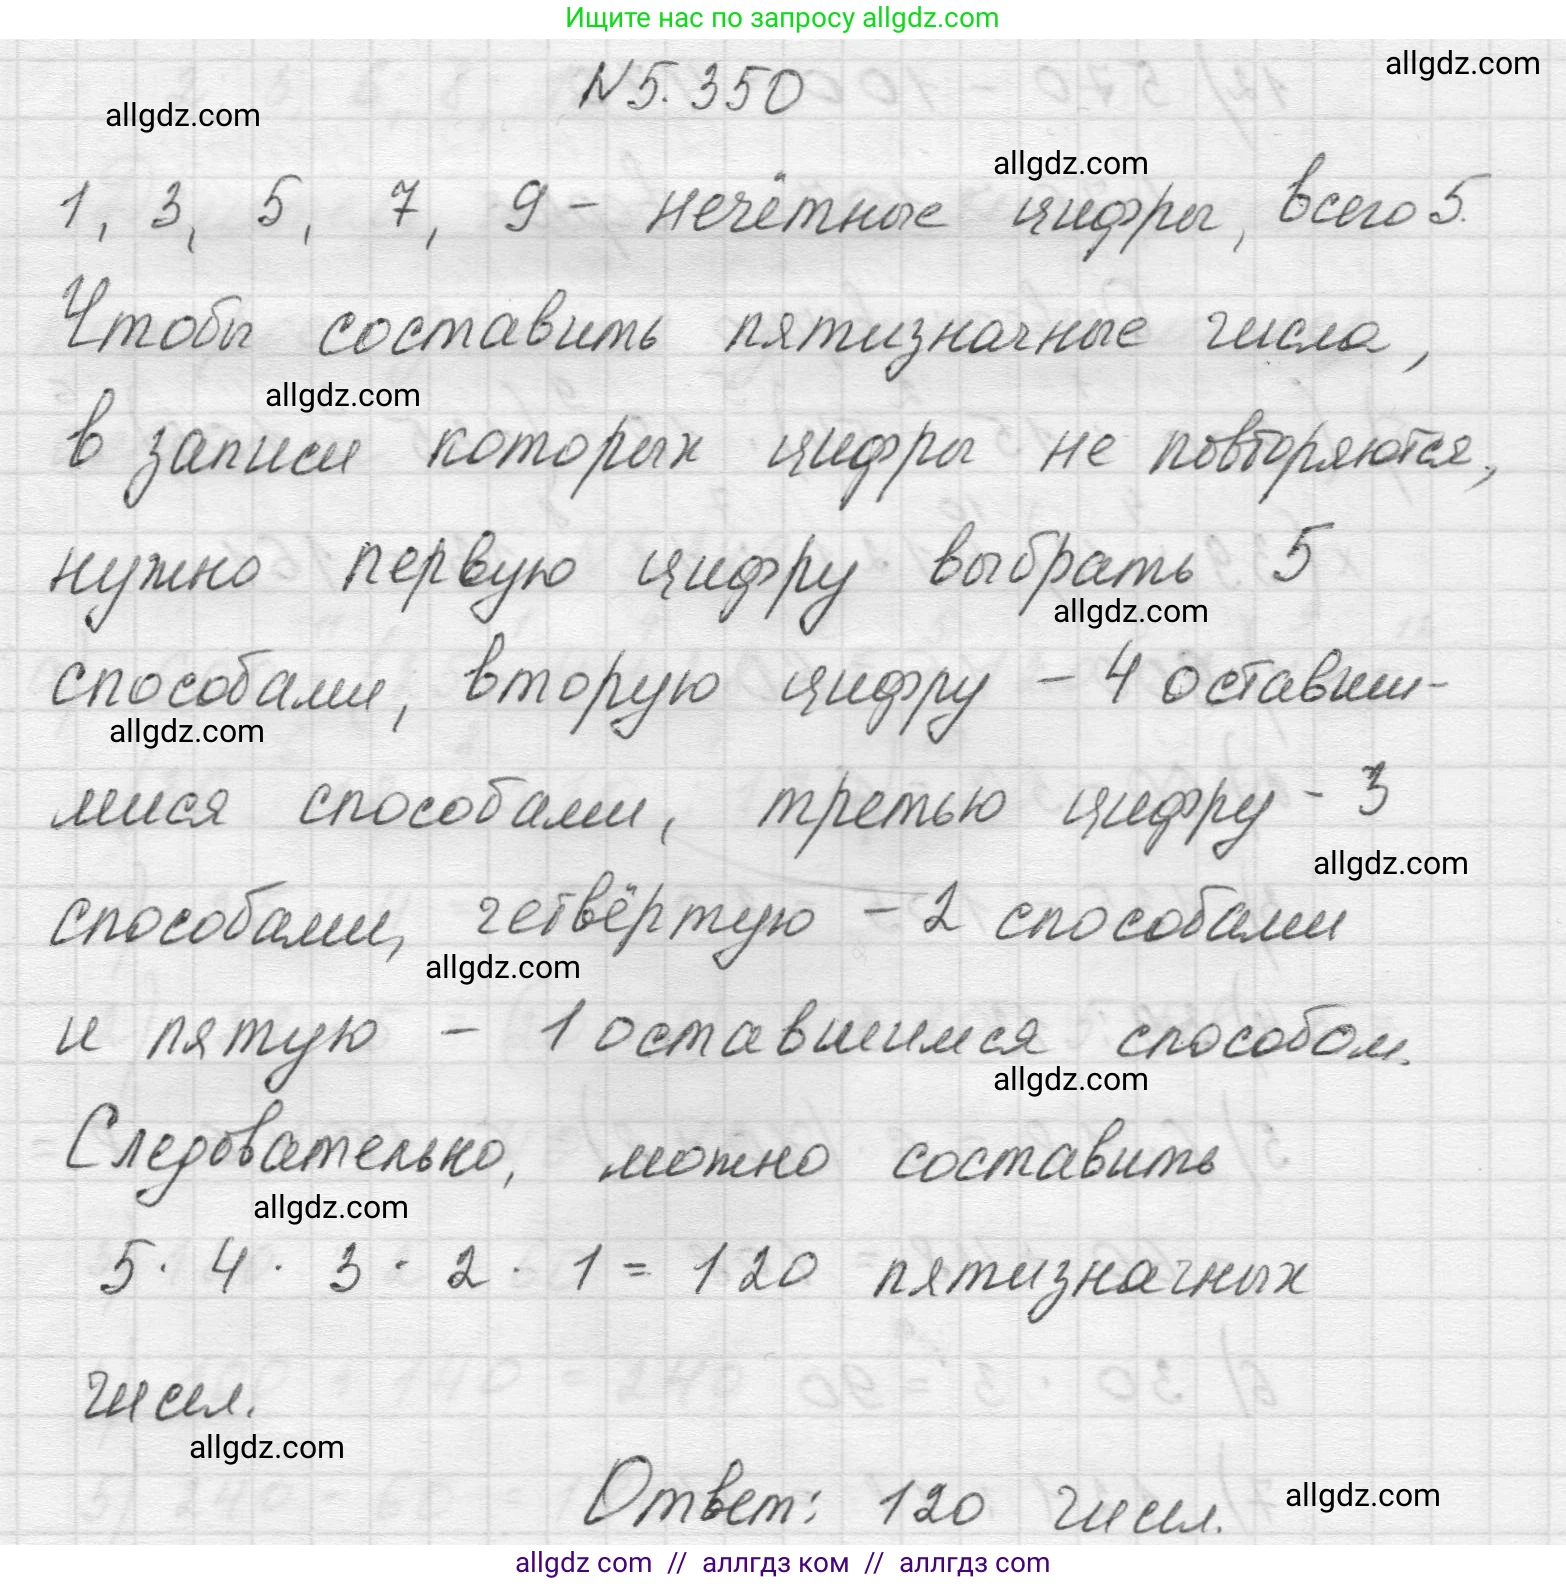 Ищите нас по запросу allgdz.com
allgdz.com
№5.350
allgdz.com
allgdz.com
1, 3, 5, 7, 9 – нечётные цифры, всего 5.
Чтобы составить пятизначные числа,
allgdz.com
в записи которых цифры не повторяются,
нужно первую цифру выбрать 5
allgdz.com
способами, вторую цифру – 4 оставши-
allgdz.com
мися способами, третью цифру – 3
allgdz.com
способами, четвёртую – 2 способами
allgdz.com
и пятую – 1 оставшимся способом.
allgdz.com
Следовательно, можно составить
allgdz.com
5 · 4 · 3 · 2 · 1 = 120 пятизначных
чисел.
allgdz.com
Ответ: 120 чисел.
allgdz.com
allgdz com // аллгдз ком // аллгдз com